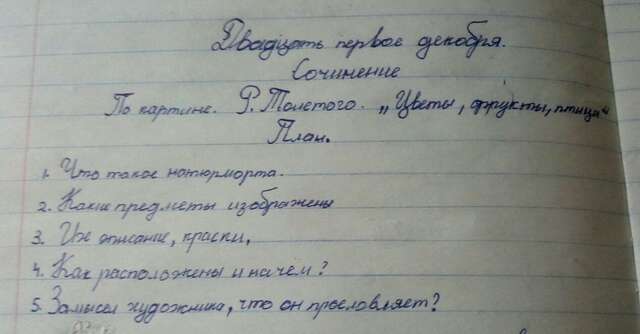 Двадцать первое декабря.
Сочинение
По картине. Р. Толстого. „Цветы, фрукты, птица“
План.
1. Что такое натюрморта.
2. Какие предметы изображены
3. Их описание, краски,
4. Как расположены и на чем?
5. Замысел художника, что он прославляет?